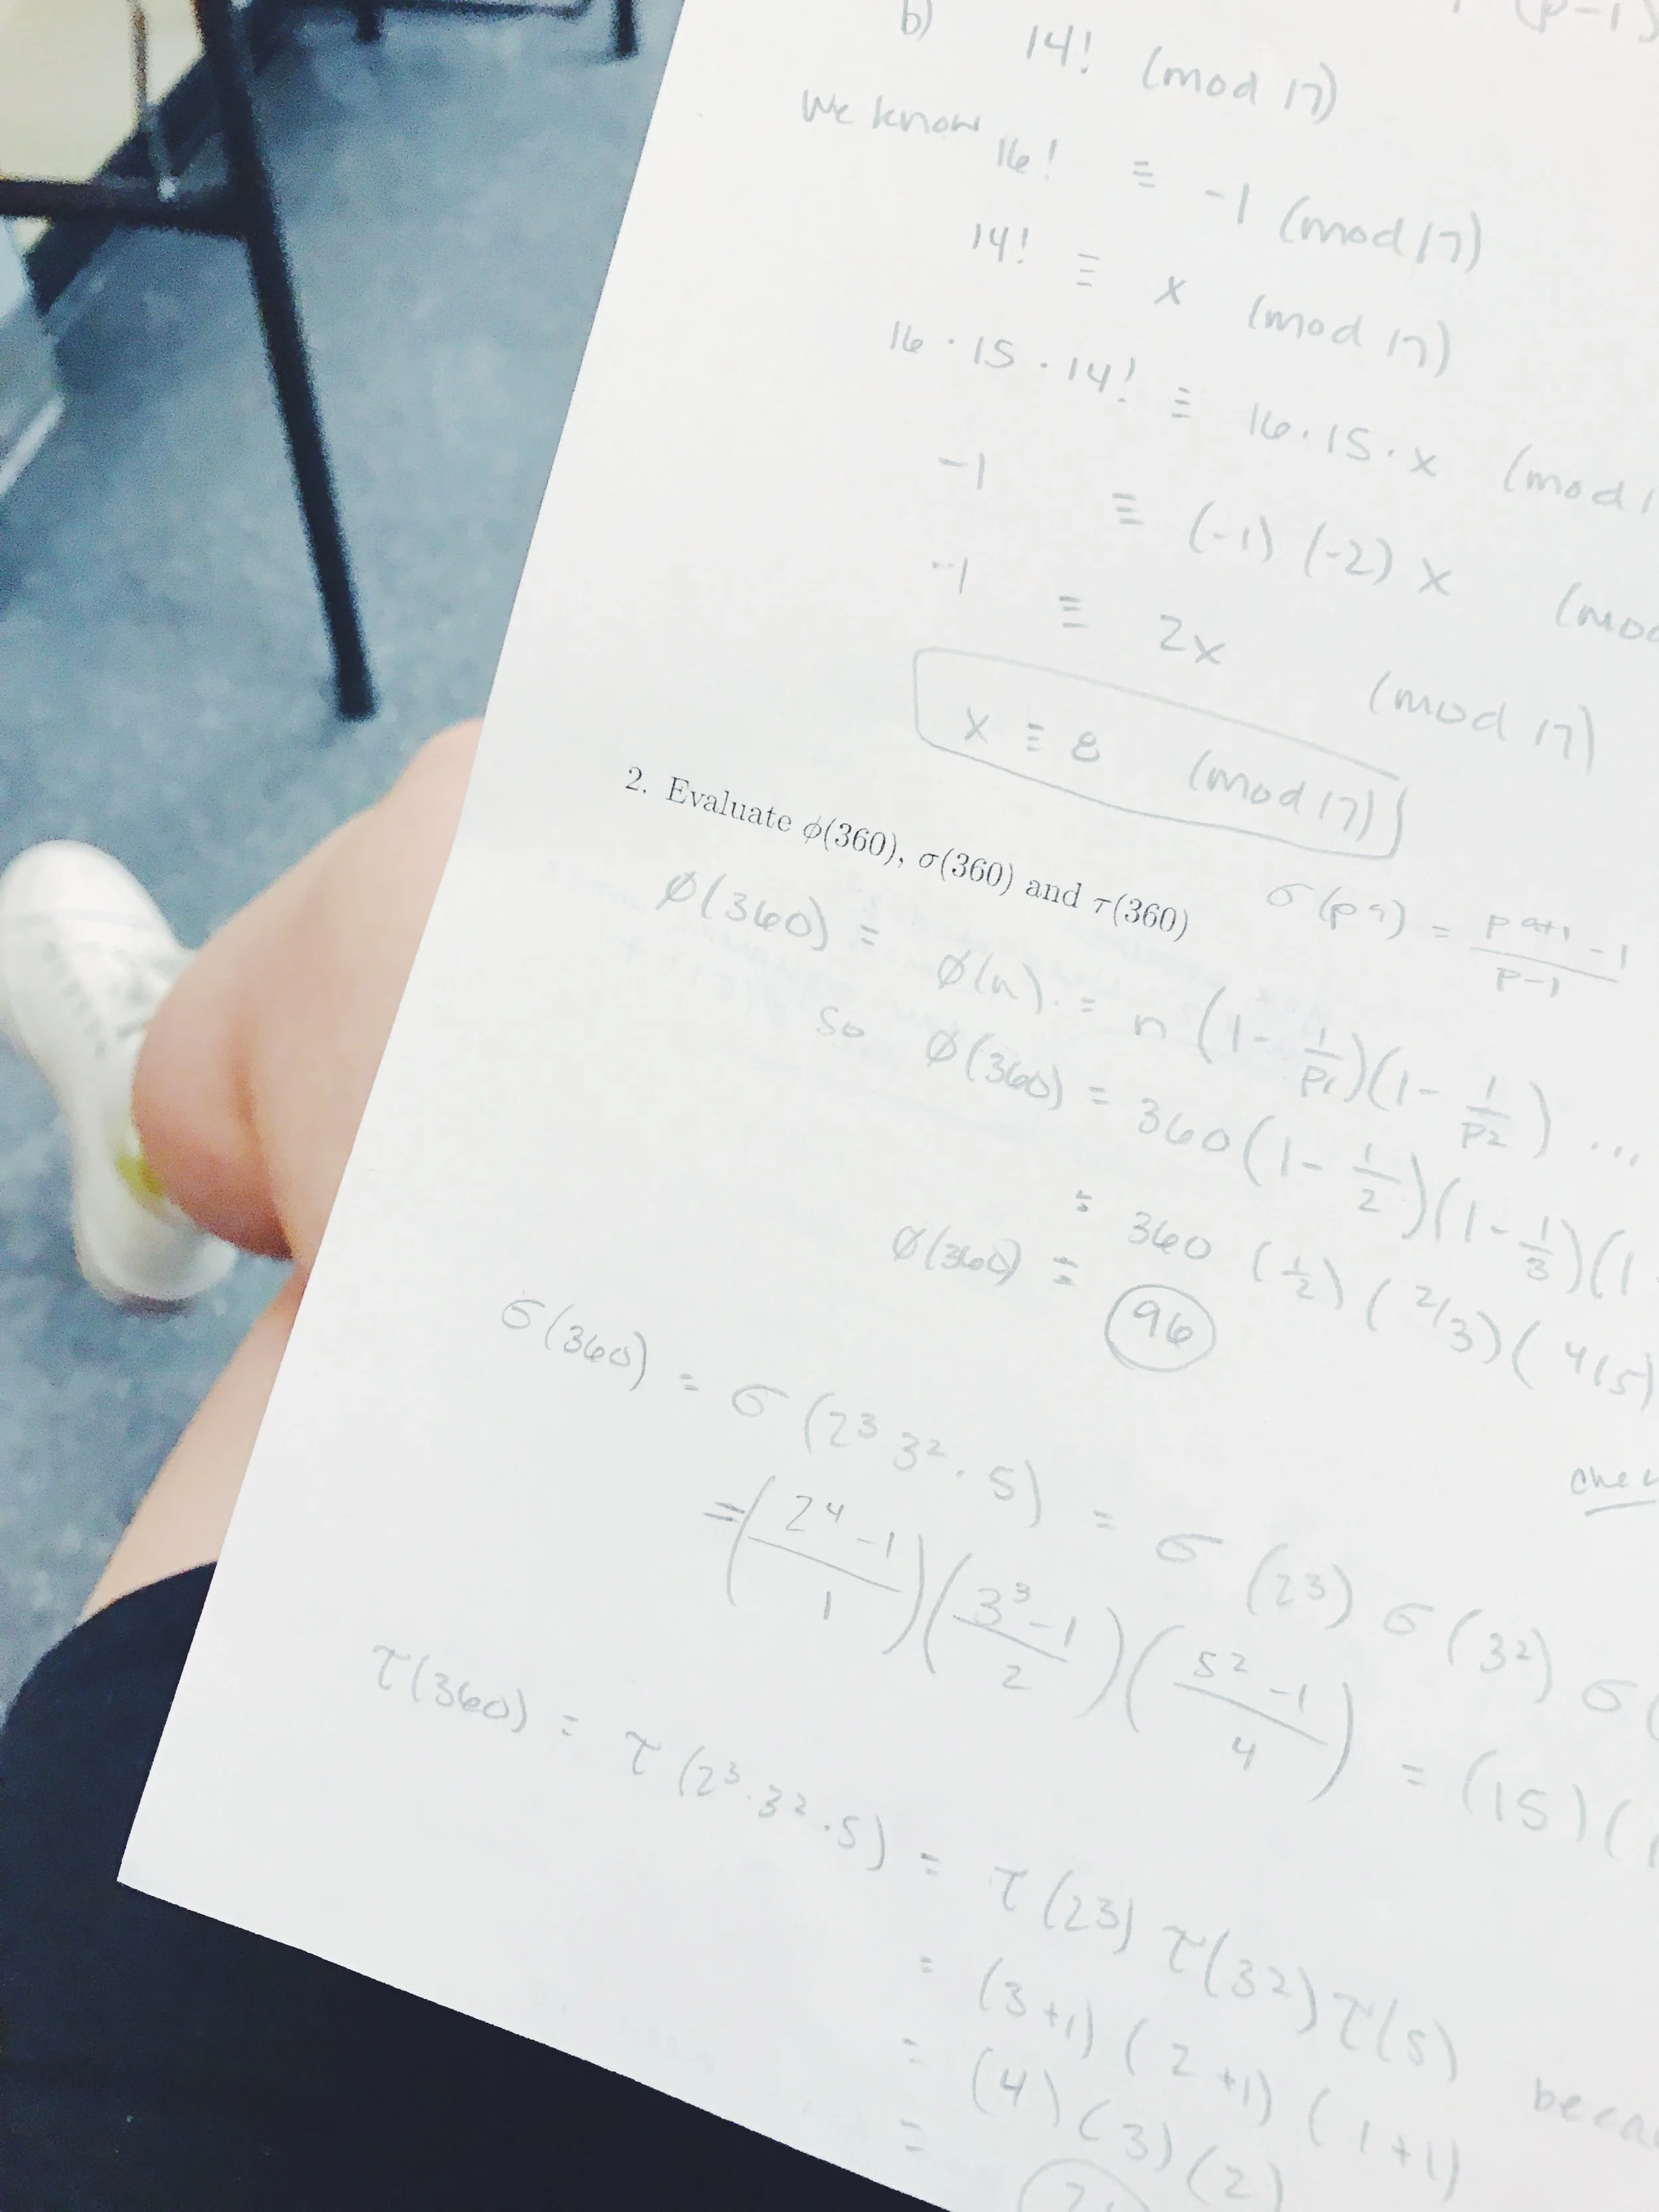 (p-1)
b) 14! (mod 17)
We know 16! ≡ -1 (mod 17)
14! ≡ x (mod 17)
16 · 15 · 14! ≡ 16 · 15 · x (mod 1
-1 ≡ (-1) (-2) x (mod
-1 ≡ 2x (mod 17)
x ≡ 8 (mod 17)
2. Evaluate ϕ(360), σ(360) and τ(360)
σ(pᵃ) = (pᵃ⁺¹ - 1)/(p-1)
ϕ(360) = ϕ(n) = n (1 - 1/p₁)(1 - 1/p₂) ...
so ϕ(360) = 360 (1 - 1/2)(1 - 1/3)(1
= 360 (1/2) (2/3) (4/5)
ϕ(360) = 96
σ(360) = σ(2³ 3² · 5) = σ(2³) σ(3²) σ(
= ((2⁴ - 1)/1) ((3³ - 1)/2) ((5² - 1)/4) = (15)(
τ(360) = τ(2³ · 3² · 5) = τ(2³) τ(3²) τ(5)
= (3+1) (2+1) (1+1)
= (4) (3) (2)
=